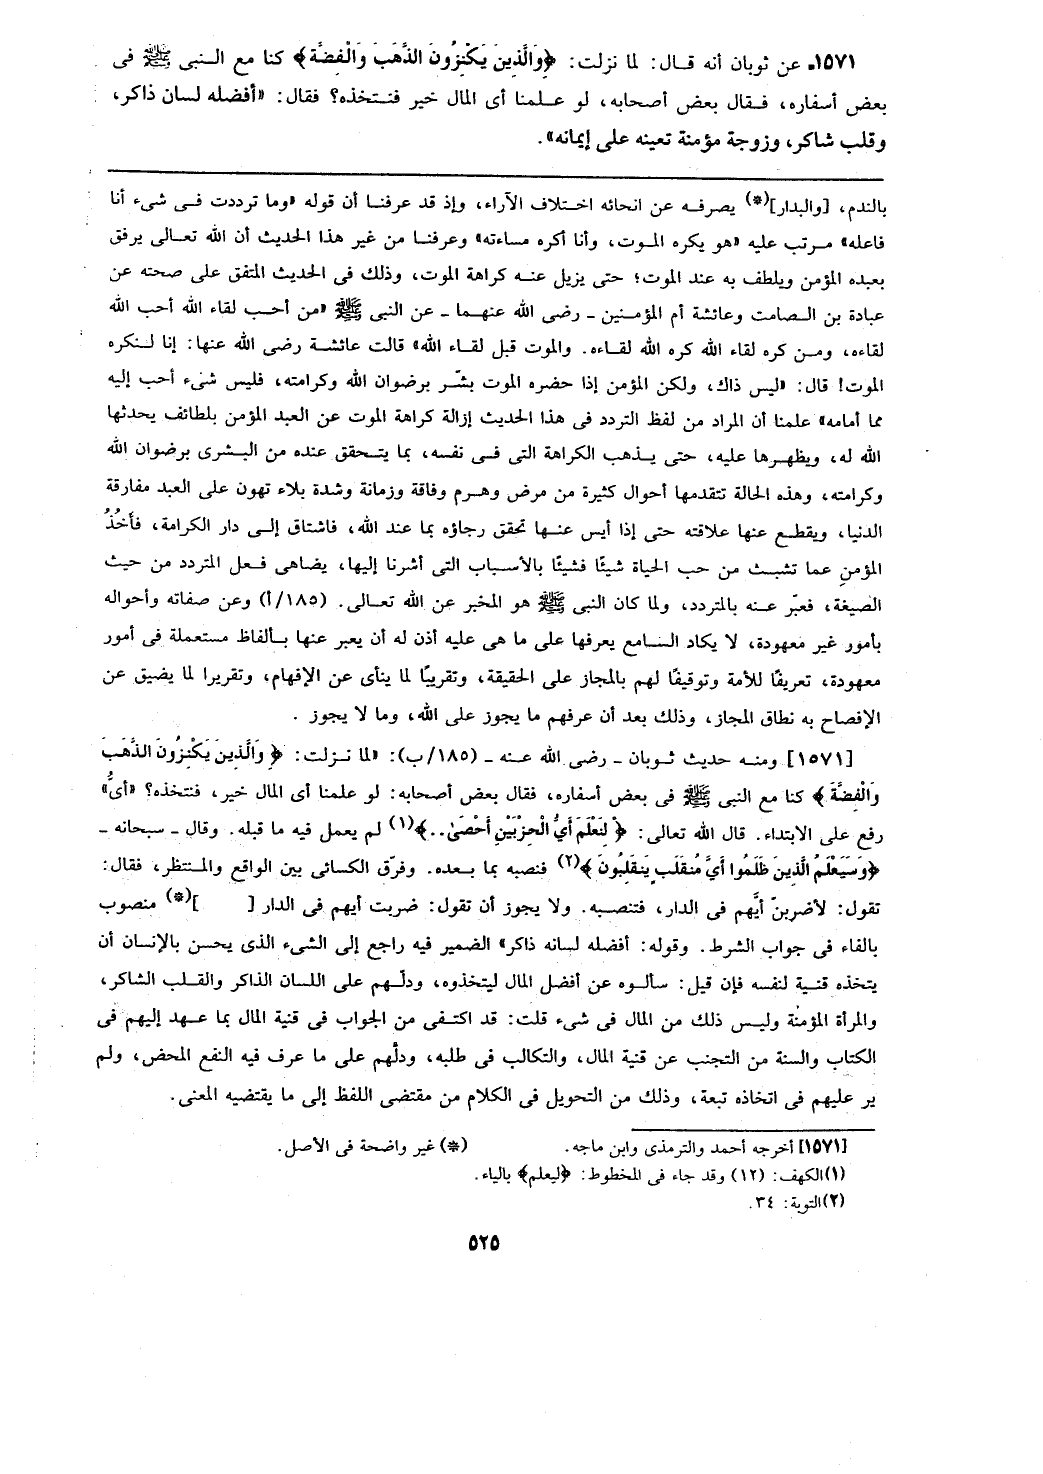 ١٥٧١ـ عن ثوبان أنه قـال: لما نزلت: ﴿وَالَّذِينَ يَكْنِزُونَ الذَّهَبَ وَالْفِضَّةَ﴾ كنا مع النـبى ﷺ فى
بعض أسفاره، فـقال بعض أصحابه، لو عـلمنا أى المال خير فنـتخذه؟ فقال: «أفضله لسان ذاكر،
وقلب شاكر، وزوجة مؤمنة تعينه على إيمانه».
بالندم، [والبدار](*) يصرفـه عن انحائه اختـلاف الآراء، وإذ قد عرفنـا أن قوله «وما ترددت فـى شىء أنا
فاعله» مـرتب عليه «هو يكره المـوت، وأنا أكره مساءته» وعرفنـا من غير هذا الحديث أن الله تعـالى يرفق
بعبده المؤمن ويلطف به عند الموت؛ حتى يزيل عنـه كراهة الموت، وذلك فى الحديث المتفق على صحته عن
عبادة بن الـصامت وعائشة أم المؤمـنين ـ رضى الله عنهـما ـ عن النبى ﷺ «من أحـب لقاء الله أحب الله
لقاءه، ومـن كره لقاء الله كره الله لقـاءه. والموت قبل لقـاء الله» قالت عائشـة رضى الله عنها: إنا لنـكره
الموت! قال: «ليس ذاك، ولكن المؤمن إذا حضره الموت بشّـر برضوان الله وكرامته، فليس شىء أحب إليه
مما أمامه» علمنا أن المراد من لفظ التردد فى هذا الحديث إزالة كراهة الموت عن العبد المؤمن بلطائف يحدثها
الله له، ويظهـرها عليه، حتى يـذهب الكراهة التى فـى نفسه، بما يتـحقق عنده من البـشرى برضوان الله
وكرامته، وهذه الحالة تتقدمها أحوال كثيرة من مرض وهـرم وفاقة وزمانة وشدة بلاء تهون على العبد مفارقة
الدنيا، ويقطـع عنها علاقته حتى إذا أيس عنـها تحقق رجاؤه بما عند الله، فاشتاق إلـى دار الكرامة، فأَخْذُ
المؤمنِ عما تشبث من حب الحياة شيئًا فشيئًا بالأسباب التى أشرنا إليها، يضاهى فـعل المتردد من حيث
الصيغة، فعبّر عنـه بالتردد، ولما كان النبى ﷺ هو المخبر عن الله تعـالى. (١٨٥/أ) وعن صفاته وأحواله
بأمور غير معهودة، لا يكاد السـامع يعرفها على ما هى عليه أذن له أن يعبر عنها بـألفاظ مستعملة فى أمور
معهودة، تعريفًا للأمة وتوقيفًا لهم بالمجاز على الحقيقة، وتقريبًا لما ينأى عن الإفهام، وتقريرا لما يضيق عن
الإفصاح به نطاق المجاز، وذلك بعد أن عرفهم ما يجوز على الله، وما لا يجوز .
[١٥٧١] ومنـه حديث ثـوبان ـ رضى الله عـنه ـ (١٨٥/ب): «لما نـزلت: ﴿ وَالَّذِينَ يَكْنِزُونَ الذَّهَبَ
وَالْفِضَّةَ ﴾ كنا مع النبى ﷺ فى بعض أسفاره، فقال بعض أصحابه: لو علمنا أى المال خير، فنتخذه؟ «أىُّ»
رفع على الابتداء. قال الله تعالى: ﴿ لِنَعْلَمَ أَيُّ الْحِزْبَيْنِ أَحْصَىٰ..﴾(١) لم يعمل فيه ما قبله. وقال ـ سبحانه ـ
﴿وَسَيَعْلَمُ الَّذِينَ ظَلَمُوا أَيَّ مُنقَلَبٍ يَنقَلِبُونَ ﴾(٢) فنصبه بما بـعده. وفرّق الكسائى بين الواقع والمـنتظر، فقال:
تقول: لأضربنّ أيَّهم فى الدار، فتنصـبه. ولا يجوز أن تقول: ضربت أيهم فى الدار [ ](*) منصوب
بالفاء فى جواب الشرط. وقوله: أفضله لسانه ذاكر» الضمير فيه راجع إلى الشىء الذى يحسن بالإنسان أن
يتخذه قنـية لنفسه فإن قيل: سألـوه عن أفضل المال ليتخذوه، ودلّـهم على اللسان الذاكر والقـلب الشاكر،
والمرأة المؤمنة وليس ذلك من المال فى شىء قلت: قد اكتـفى من الجواب فى قنية المال بما عـهد إليهم فى
الكتاب والسنة من التجنب عن قنية المال، والتكالب فى طلبه، ودلّهم على ما عرف فيه النفع المحض، ولم
ير عليهم فى اتخاذه تبعة، وذلك من التحويل فى الكلام من مقتضى اللفظ إلى ما يقتضيه المعنى.
[١٥٧١] أخرجه أحمد والترمذى وابن ماجه. (*) غير واضحة فى الأصل.
(١) الكهف: (١٢) وقد جاء فى المخطوط: ﴿ليعلم﴾ بالياء.
(٢) التوبة: ٣٤.
٥٢٥